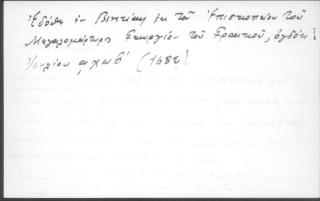 Ἐδόθη ἐν Βενετίαις ἐκ τοῦ Ἐπισκοπείου τοῦ
Μεγαλομάρτυρος Γεωργίου τοῦ Γραικοῦ, ὀγδόῃ
Ἰουλίου αχπβ' (1682).